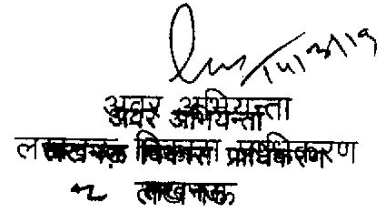 14/3/19
अवर अभियन्ता
लखनऊ विकास प्राधिकरण
लखनऊ